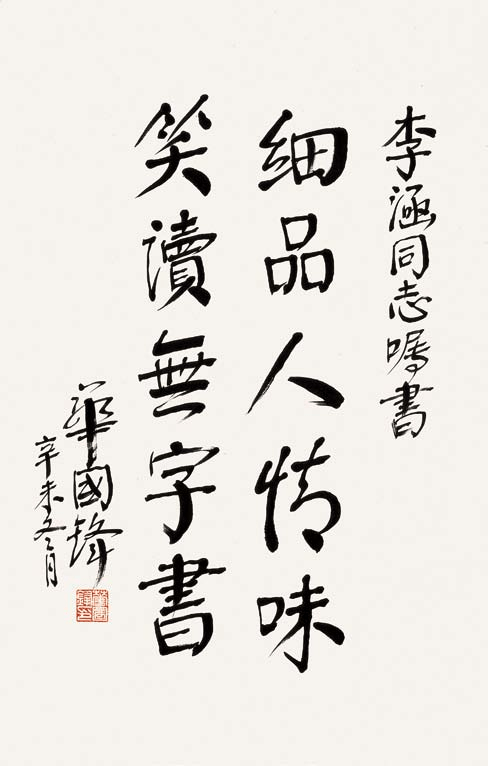 李涵同志嘱書
細品人情味
笑讀無字書
華國鋒
辛未冬月